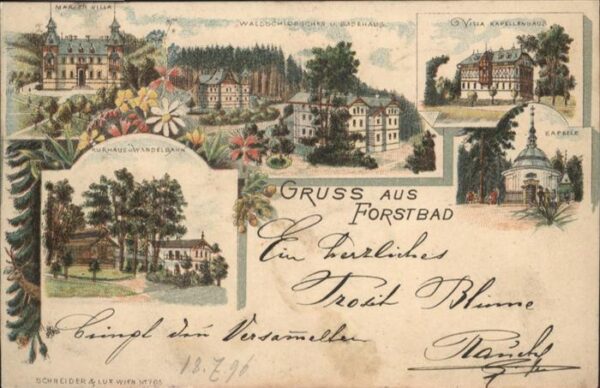 MARIEN VILLA
WALDSCHLÖSSCHEN U. BADEHAUS
VILLA KAPELLENHAUS
KAPELLE
KURHAUS U. WANDELBAHN
GRUSS AUS
FORSTBAD
Ein herzliches
Prosit Blume
den Versammelten
18.7.96
SCHNEIDER & LUX WIEN No 705